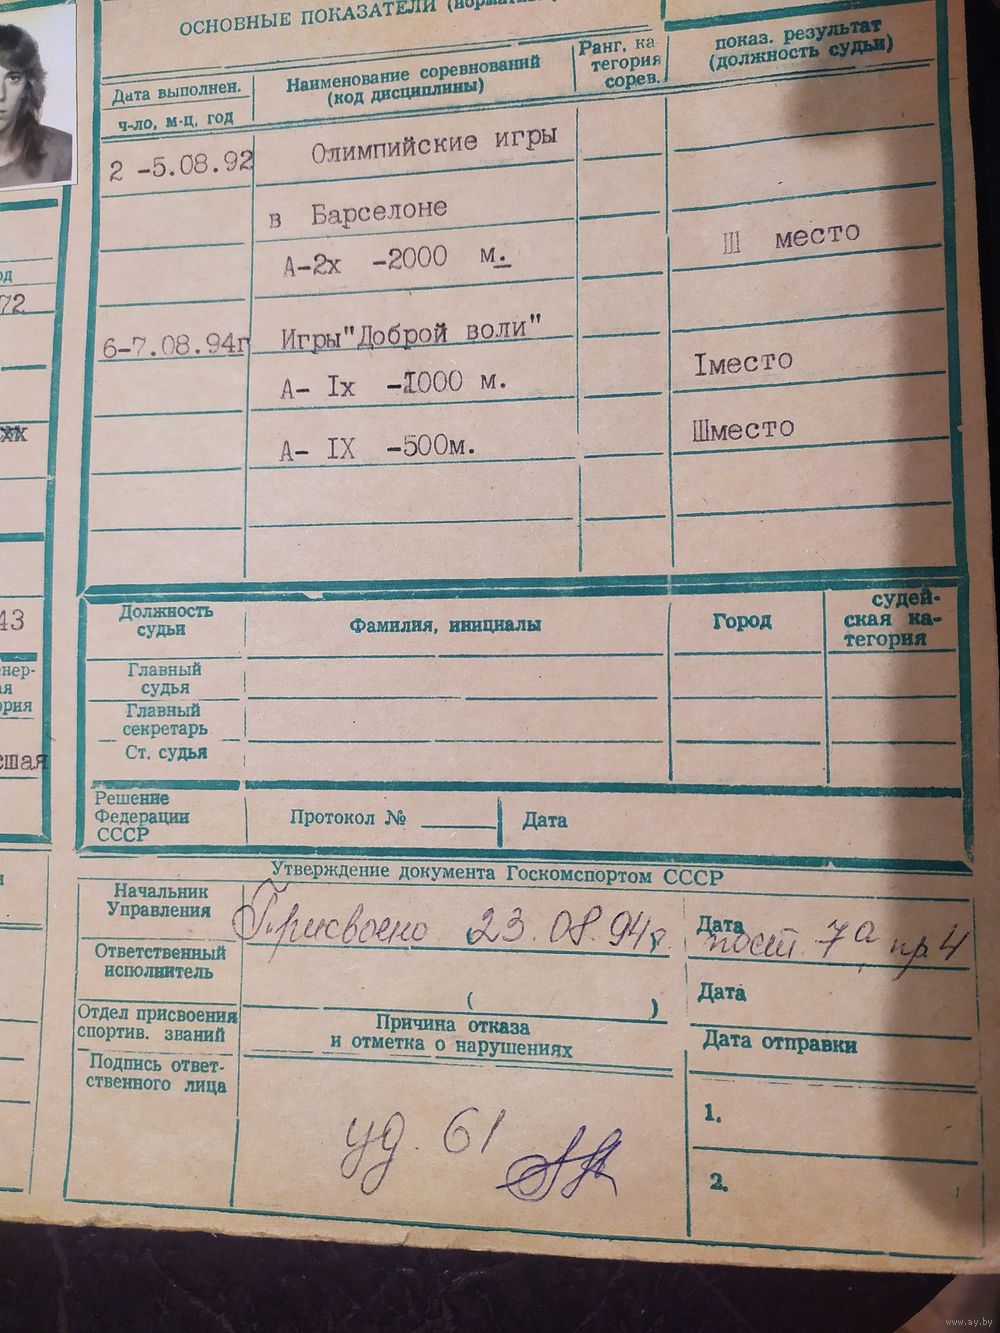 ОСНОВНЫЕ ПОКАЗАТЕЛИ
Дата выполнен.
ч-ло, м-ц, год
Наименование соревнований
(код дисциплины)
Ранг, ка
тегория
сорев.
показ. результат
(должность судьи)
2 -5.08.92 Олимпийские игры
в Барселоне
А-2х -2000 м. Ш место
6-7.08.94г Игры"Доброй воли"
А- Iх -1000 м. Iместо
А- IX -500м. Шместо
72
43
Должность
судьи
Фамилия, инициалы
Город
судей-
ская ка-
тегория
Главный
судья
Главный
секретарь
Ст. судья
Решение
Федерации
СССР
Протокол №
Дата
Утверждение документа Госкомспортом СССР
Начальник
Управления
Присвоено 23.08.94г.
Дата
пост. 7а пр. 4
Ответственный
исполнитель
( )
Дата
Отдел присвоения
спортив. званий
Причина отказа
и отметка о нарушениях
Дата отправки
Подпись ответ-
ственного лица
уд. 61
1.
2.
www.ay.by